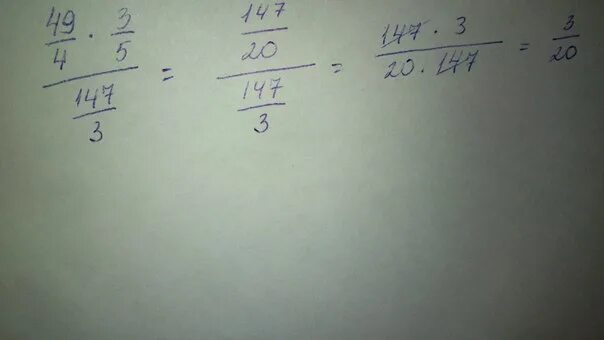 49/4 · 3/5 / 147/3 = 147/20 / 147/3 = 147 · 3 / 20 · 147 = 3/20